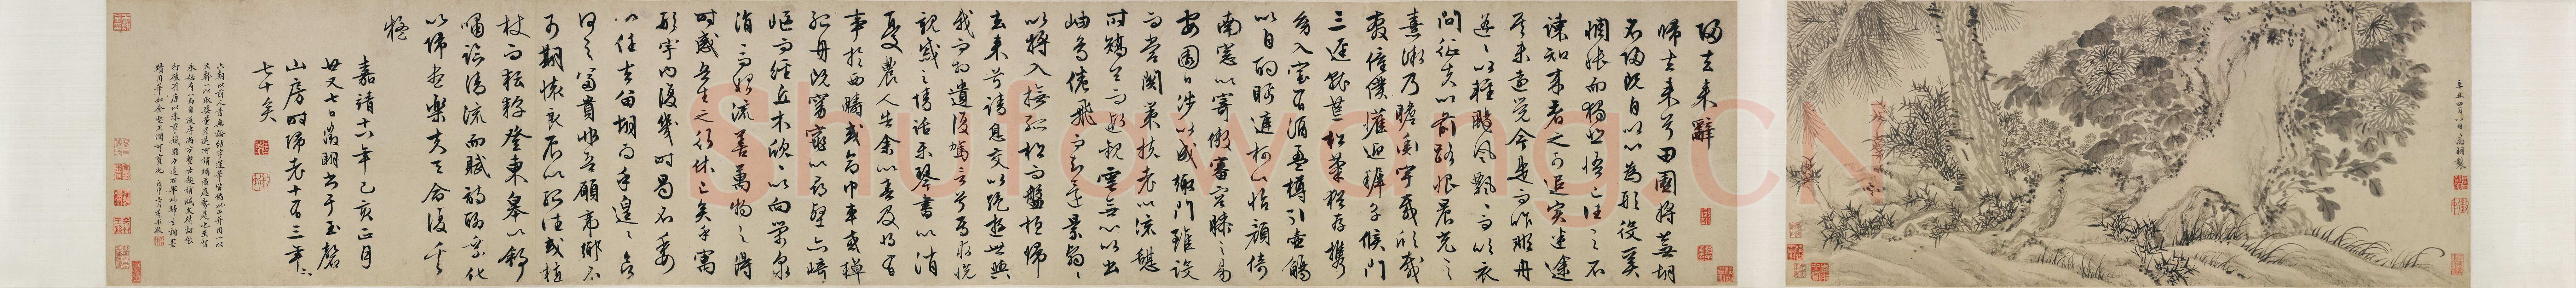 辛丑四月八日
歸去來辭
歸去來兮田園將蕪胡
不歸既自以心為形役奚
惆悵而獨悲悟已往之不
諫知來者之可追實迷途
其未遠覺今是而昨非舟
遙遙以輕颺風飄飄而吹衣
問征夫以前路恨晨光之
熹微乃瞻衡宇載欣載
奔僮僕歡迎稚子候門
三逕就荒松菊猶存攜
幼入室有酒盈樽引壺觴
以自酌眄庭柯以怡顏倚
南窗以寄傲審容膝之易
安園日涉以成趣門雖設
而常關策扶老以流憩
時矯首而遐觀雲無心以出
岫鳥倦飛而知還景翳翳
以將入撫孤松而盤桓歸
去來兮請息交以絕遊世與
我而相遺復駕言兮焉求悅
親戚之情話樂琴書以消
憂農人告余以春及將有
事於西疇或命巾車或棹
孤舟既窈窕以尋壑亦崎
嶇而經丘木欣欣以向榮泉
涓涓而始流善萬物之得
時感吾生之行休已矣乎寓
形宇內復幾時曷不委
心任去留胡為乎遑遑兮欲
何之富貴非吾願帝鄉不
可期懷良辰以孤往或植
杖而耘耔登東皋以舒
嘯臨清流而賦詩聊乘化
以歸盡樂夫天命復奚
疑
嘉靖十六年己亥正月
廿又七日徵明書于玉磬
山房時歸老十有三年
七十矣
六朝以前人書無論結字運筆
Shufawang.CN